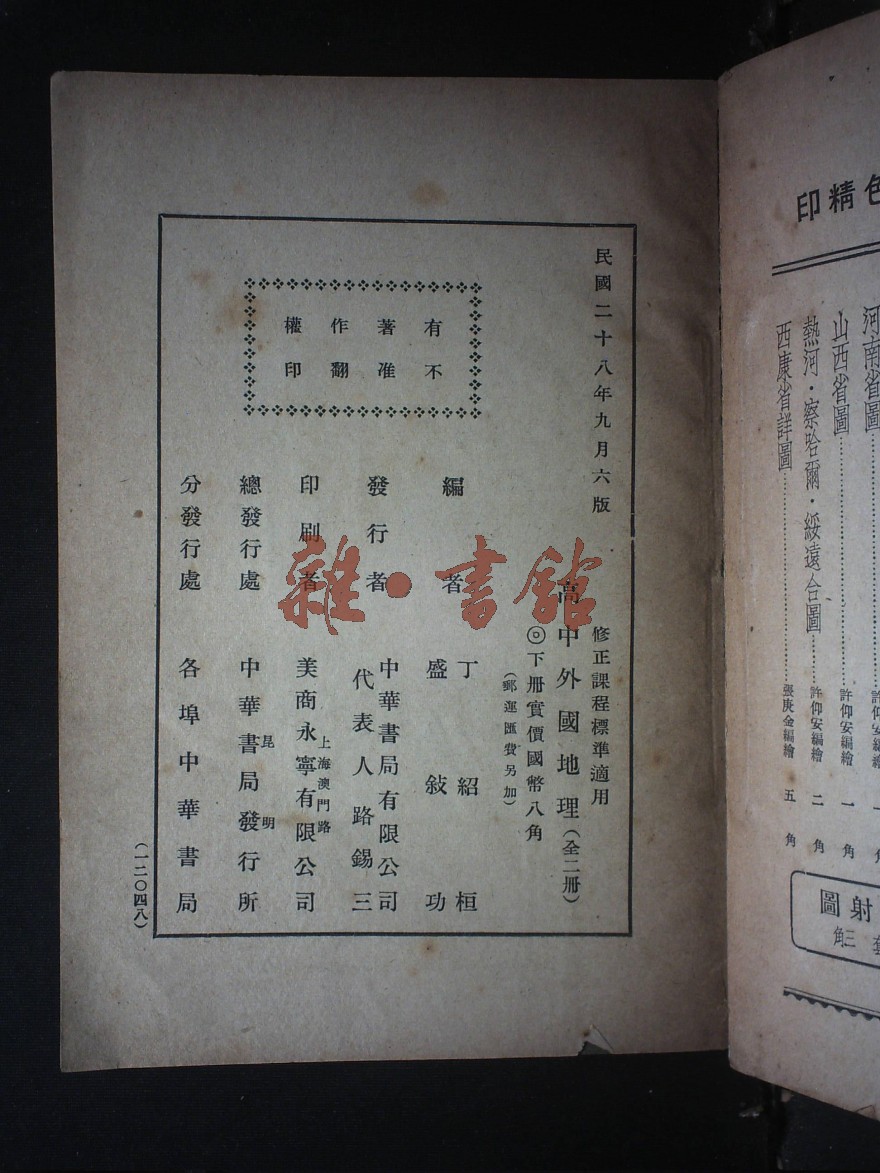 民國二十八年九月六版
有著作權
不准翻印
修正課程標準適用
高中外國地理(全二冊)
◎下冊實價國幣八角
(郵運匯費另加)
編著者
丁紹桓
盛敍功
發行者
中華書局有限公司
代表人路錫三
印刷者
上海澳門路
美商永寧有限公司
總發行處
昆明
中華書局發行所
分發行處
各埠中華書局
(一二〇四八)
雜·書館
色精印
河南省圖
許仰安編繪
山西省圖
許仰安編繪 一角
熱河·察哈爾·綏遠合圖
許仰安編繪 二角
西康省詳圖
張庚金編繪 五角
射圖
三角